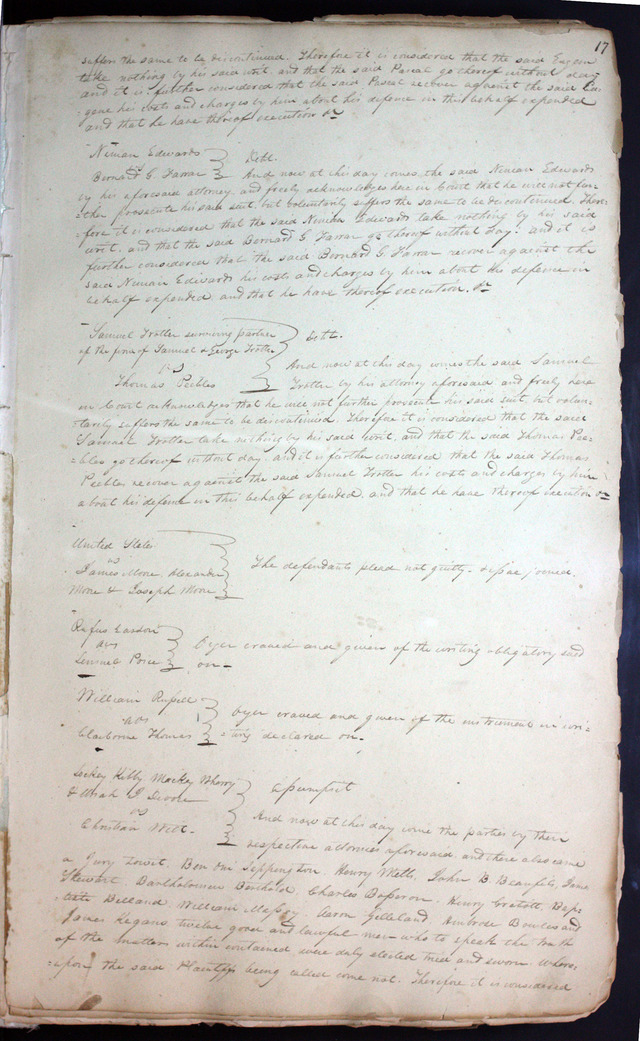 17
suffers the same to be discontinued. Therefore it is considered that the said Eugene
take nothing by his said writ, and that the said Pascal go thereof without day
and it is further considered that the said Pascal recover against the said Eu-
-gene his costs and charges by him about his defense in this behalf expended
and that he have thereof execution &c
Ninian Edwards
vs
Bernard G. Farrar
Debt.
And now at this day comes the said Ninian Edwards
by his aforesaid attorney, and freely acknowledges here in Court that he will not fur-
-ther prosecute his said suit, but voluntarily suffers the same to be discontinued. There-
-fore it is considered that the said Ninian Edwards take nothing by his said
writ, and that the said Bernard G. Farrar go thereof without day. and it is
further considered that the said Bernard G. Farrar recover against the
said Ninian Edwards his costs and charges by him about his defense in
behalf expended and that he have thereof execution. &c
Samuel Trotter surviving partner
of the firm of Samuel & George Trotter
vs
Thomas Peebles
Debt.
And now at this day comes the said Samuel
Trotter by his attorney aforesaid and freely here
in Court acknowledges that he will not further prosecute his said suit, but volun-
tarily suffers the same to be discontinued. Therefore it is considered that the said
Samuel Trotter take nothing by his said writ, and that the said Thomas Pee-
-bles go thereof without day. and it is further considered that the said Thomas
Peebles recover against the said Samuel Trotter his costs and charges by him
about his defense in this behalf expended, and that he have thereof execution &c
United States
vs
James Moore, Alexander
Moore & Joseph Moore
The defendants plead not guilty - issue joined.
Rufus Easton
vs
Lemuel Price
Oyer craved and given of the writing obligatory sued
on -
William Russell
vs
Claiborne Thomas
Oyer craved and given of the instrument in wri-
-ting declared on -
& Uriah J. Devore
vs
Christian Wilt.
Assumpsit
And now at this day come the parties by their
respective attornies aforesaid, and there also came
a Jury towit, Henry Mells, John B.
Stewart, Bartholomew Berthold, Charles Bosseron, Henry Bap-
William Massey, Aaron Ambrose and
James twelve good and lawful men who to speak the truth
of the matters within contained were duly elected tried and sworn. Where-
-upon the said Plaintiffs being called come not. Therefore it is considered